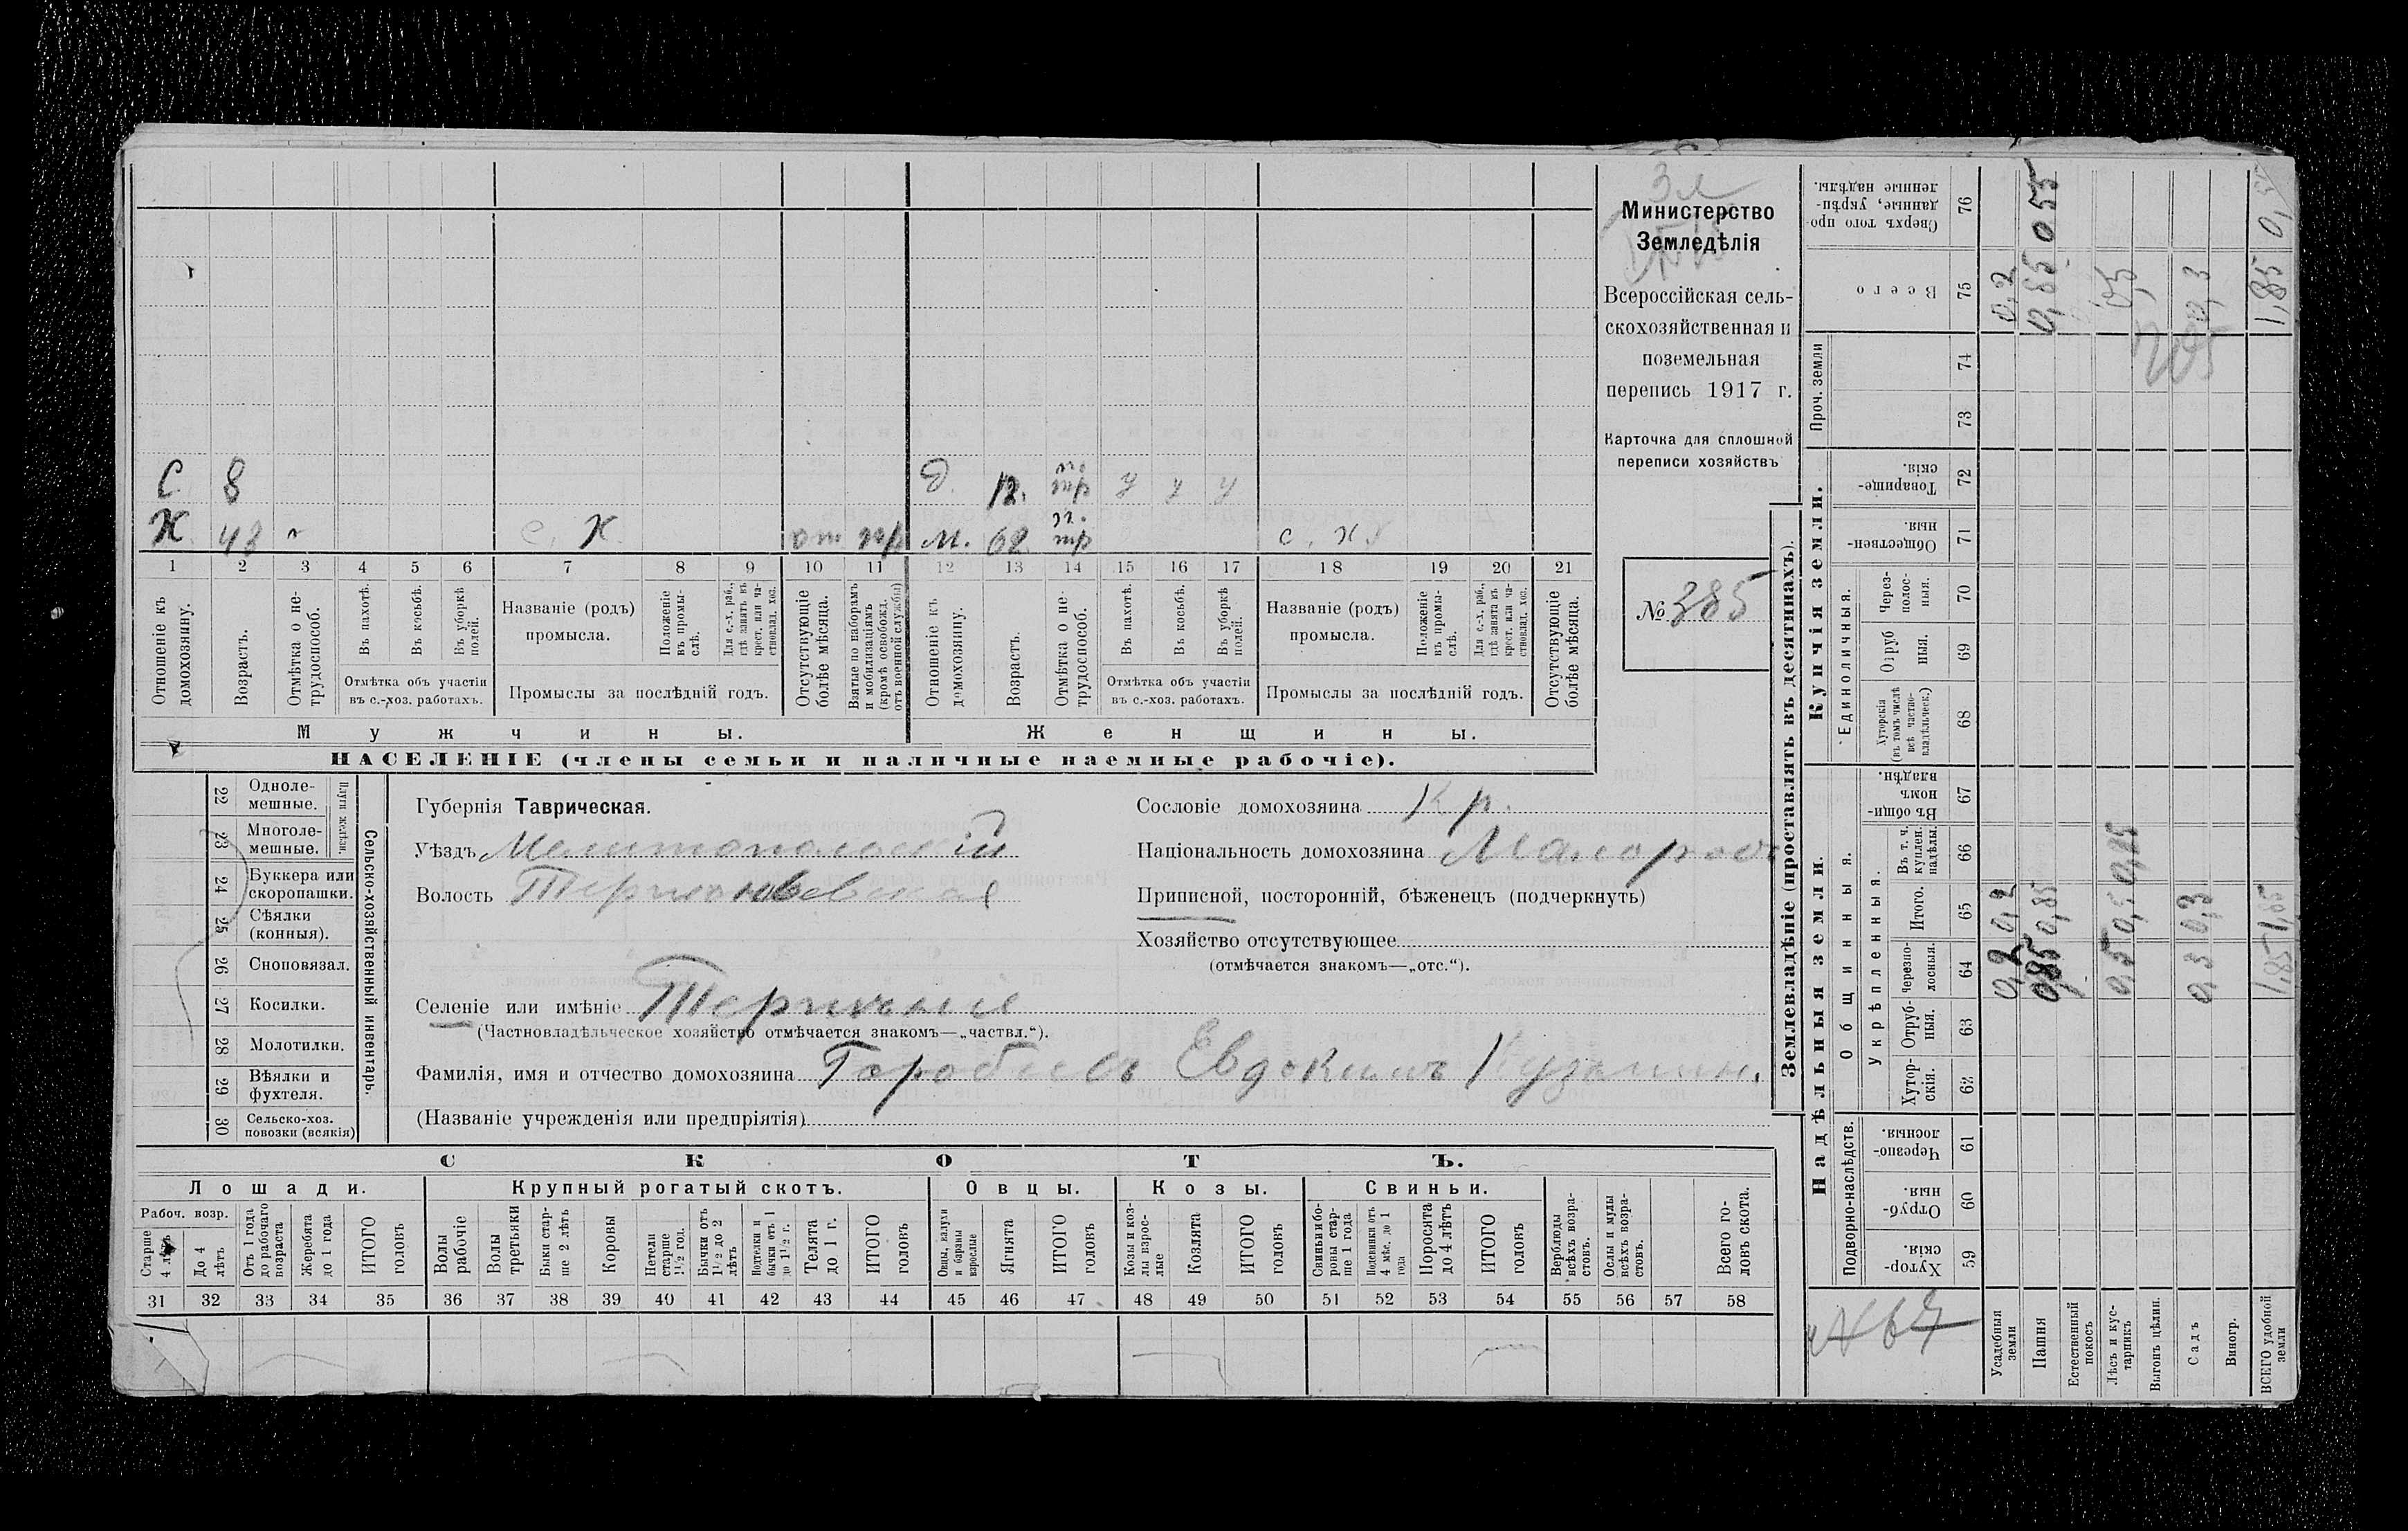 Министерство
Земледѣлія
Всероссійская сель-
скохозяйственная и
поземельная
перепись 1917 г.
Карточка для сплошной
переписи хозяйствъ
№ 385
С 8
Х 43 с. х. от мр
д. 12. п. тр у у у
м. 62 п. тр с. х.
1 2 3 4 5 6 7 8 9 10 11 12 13 14 15 16 17 18 19 20 21
Отношеніе къ домохозяину.
Возрастъ.
Отмѣтка о не-трудоспособ.
Въ пахотѣ.
Въ косьбѣ.
Въ уборкѣ полей.
Отмѣтка объ участіи въ с.-хоз. работахъ.
Названіе (родъ) промысла.
Положеніе въ промы-слѣ.
Для с.-х. раб., гдѣ занятъ въ крест. или ча-стновлад. хоз.
Промыслы за послѣдній годъ.
Отсутствующіе болѣе мѣсяца.
Взятые по наборамъ и мобилизаціямъ (кромѣ освобожд. отъ военной службы)
Отношеніе къ домохозяину.
Возрастъ.
Отмѣтка о не-трудоспособ.
Въ пахотѣ.
Въ косьбѣ.
Въ уборкѣ полей.
Отмѣтка объ участіи въ с.-хоз. работахъ.
Названіе (родъ) промысла.
Положеніе въ промы-слѣ.
Для с.-х. раб., гдѣ занята въ крест. или ча-стновлад. хоз.
Промыслы за послѣдній годъ.
Отсутствующіе болѣе мѣсяца.
Мужчины. Женщины.
НАСЕЛЕНІЕ (члены семьи и наличные наемные рабочіе).
Сельско-хозяйственный инвентарь.
Плуги желѣзн.
22 Одноле-мешные.
23 Многоле-мешные.
24 Буккера или скоропашки.
25 Сѣялки (конныя).
26 Сноповязал.
27 Косилки.
28 Молотилки.
29 Вѣялки и фухтеля.
30 Сельско-хоз. повозки (всякія)
Губернія Таврическая.
Уѣздъ Мелитопольскій
Волость
Селеніе или имѣніе
(Частновладѣльческое хозяйство отмѣчается знакомъ—„частвл.“).
Фамилія, имя и отчество домохозяина Горобецъ Евдокимъ Кузьмин.
(Названіе учрежденія или предпріятія)
Сословіе домохозяина Кр.
Національность домохозяина Малоросс
Приписной, посторонній, бѣженецъ (подчеркнуть)
Хозяйство отсутствующее
(отмѣчается знакомъ—„отс.“).
СКОТЪ.
Лошади. Крупный рогатый скотъ. Овцы. Козы. Свиньи.
Рабоч. возр.
Старше 4 лѣтъ
До 4 лѣтъ
Отъ 1 года до рабочаго возраста
Жеребята до 1 года
ИТОГО головъ
Волы рабочіе
Волы третьяки
Быки стар-ше 2 лѣтъ
Коровы
Нетели старше 1½ год.
Бычки отъ 1½ до 2 лѣтъ
Подтелки и бычки отъ 1 до 1½ г.
Телята до 1 г.
ИТОГО головъ
Овцы, валухи и бараны взрослые
Ягнята
ИТОГО головъ
Козы и коз-лы взрос-лые
Козлята
ИТОГО головъ
Свиньи и бо-ровы стар-ше 1 года
Подсвинки отъ 4 мѣс. до 1 года
Поросята до 4 лѣтъ
ИТОГО головъ
Верблюды всѣхъ возра-стовъ.
Ослы и мулы всѣхъ возра-стовъ.
Всего го-ловъ скота.
31 32 33 34 35 36 37 38 39 40 41 42 43 44 45 46 47 48 49 50 51 52 53 54 55 56 57 58
Землевладѣніе (проставлять въ десятинахъ).
Надѣльныя земли. Купчія земли.
Подворно-наслѣдств.
Общинныя.
Укрѣпленныя.
Единоличныя.
Проч. земли
59 Хутор-скія.
60 Отруб-ныя.
61 Черезпо-лосныя.
62 Хутор-скія.
63 Отруб-ныя.
64 Черезпо-лосныя.
65 Итого.
66 Въ т. ч. куплен. надѣлы.
67 Въ общи-номъ владѣн.
68 Хуторскія (въ томъ числѣ всѣ частно-владѣльческ.)
69 Отруб ныя.
70 Через-полос-ныя.
71 Обществен-ныя.
72 Товарище-скія.
73
74
75 Всего
76 Сверхъ того про-данные, укрѣп-ленные надѣлы.
Усадебныя земли 0,2 0,2 0,2
Пашня 0,85 0,85 0,85 0 55
Естественный покосъ
Лѣсъ и кус-тарникъ 0,5 0,5 0,5
Выгонъ цѣлин.
Садъ 0,3 0,3 0,3
Виногр.
ВСЕГО удобной земли 1,85 1,85 1,85 0,55